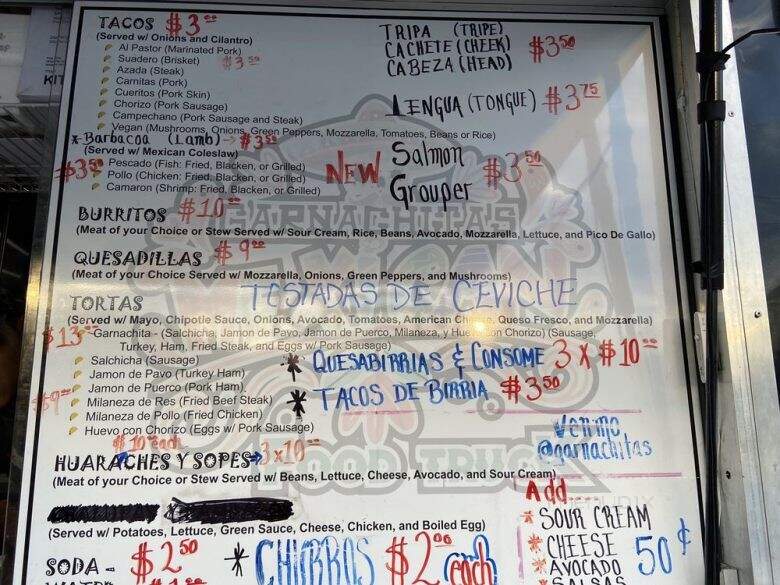 TACOS $3.00
(Served w/ Onions and Cilantro)
Al Pastor (Marinated Pork)
Suadero (Brisket) $3.50
Azada (Steak)
Carnitas (Pork)
Cueritos (Pork Skin)
Chorizo (Pork Sausage)
Campechano (Pork Sausage and Steak)
Vegan (Mushrooms, Onions, Green Peppers, Mozzarella, Tomatoes, Beans or Rice)
TRIPA (TRIPE)
CACHETE (CHEEK) $3.50
CABEZA (HEAD)
LENGUA (TONGUE) $3.75
* Barbacoa (Lamb) → $3.50
(Served w/ Mexican Coleslaw)
$3.50
Pescado (Fish: Fried, Blacken, or Grilled)
Pollo (Chicken: Fried, Blacken, or Grilled)
Camaron (Shrimp: Fried, Blacken, or Grilled)
NEW Salmon
Grouper $3.50
BURRITOS $10.00
(Meat of your Choice or Stew Served w/ Sour Cream, Rice, Beans, Avocado, Mozzarella, Lettuce, and Pico De Gallo)
QUESADILLAS $9.00
(Meat of your Choice Served w/ Mozzarella, Onions, Green Peppers, and Mushrooms)
TOSTADAS DE CEVICHE
TORTAS
(Served w/ Mayo, Chipotle Sauce, Onions, Avocado, Tomatoes, American Cheese, Queso Fresco, and Mozzarella)
Garnachita - (Salchicha, Jamon de Pavo, Jamon de Puerco, Milaneza, y Huevo con Chorizo) (Sausage,
Turkey, Ham, Fried Steak, and Eggs w/ Pork Sausage)
Salchicha (Sausage)
Jamon de Pavo (Turkey Ham)
Jamon de Puerco (Pork Ham)
Milaneza de Res (Fried Beef Steak)
Milaneza de Pollo (Fried Chicken)
Huevo con Chorizo (Eggs w/ Pork Sausage)
* QUESABIRRIAS & CONSOME 3 X $10.00
* TACOS DE BIRRIA $3.50
Venmo
@garnachitas
$10 each
HUARACHES Y SOPES → 3 x 10.00
(Meat of your Choice or Stew Served w/ Beans, Lettuce, Cheese, Avocado, and Sour Cream)
GARNACHITAS
FOOD TRUCK
(Served w/ Potatoes, Lettuce, Green Sauce, Cheese, Chicken, and Boiled Egg)
SODA - $2.50
* CHURROS $2.00 each
Add
* SOUR CREAM
* CHEESE
* AVOCADO
50¢